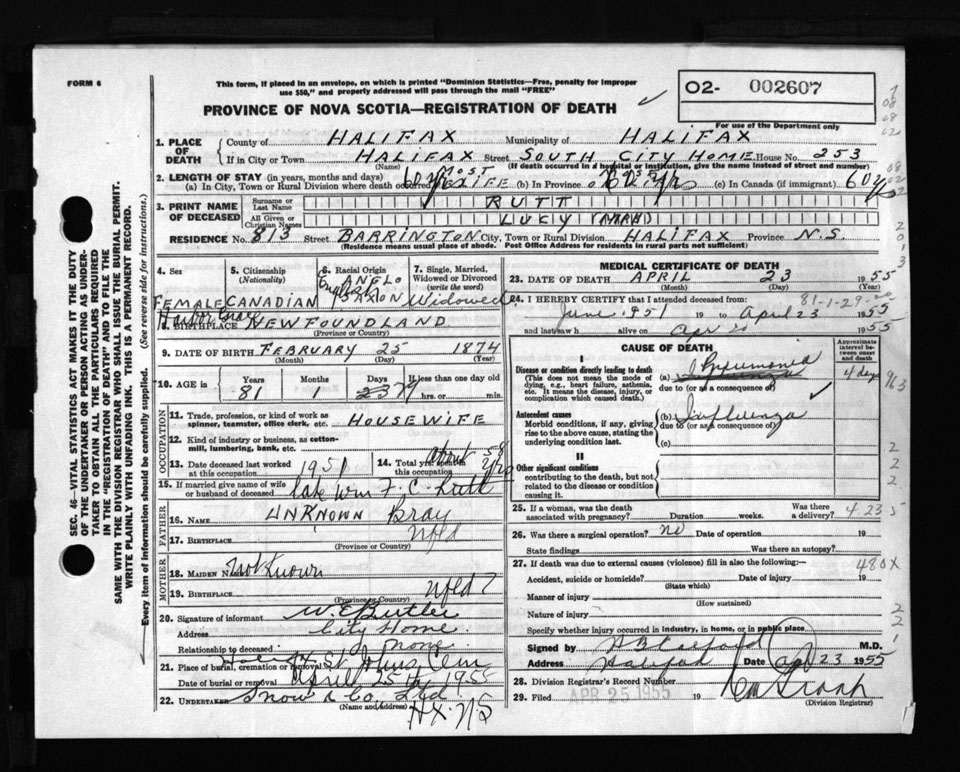 FORM 6
This form, if placed in an envelope, on which is printed "Dominion Statistics—Free, penalty for improper
use $50," and properly addressed will pass through the mail "FREE"
PROVINCE OF NOVA SCOTIA—REGISTRATION OF DEATH
O2- 002607
For use of the Department only
1. PLACE OF DEATH
County of HALIFAX Municipality of HALIFAX
If in City or Town HALIFAX Street SOUTH CITY HOME House No. 253
(Name) (If death occurred in a hospital or institution, give the name instead of street and number)
2. LENGTH OF STAY (in years, months and days)
(a) In City, Town or Rural Division where death occurred MOST LIFE (b) In Province (c) In Canada (if immigrant) 60 yrs
3. PRINT NAME OF DECEASED
Surname or Last Name RUTT
All Given or Christian Names LUCY (MRH)
RESIDENCE No. 813 Street BARRINGTON City, Town or Rural Division HALIFAX Province N.S.
(Residence means usual place of abode. Post Office Address for residents in rural parts not sufficient)
4. Sex FEMALE
5. Citizenship (Nationality) CANADIAN
6. Racial Origin English ANGLO SAXON
7. Single, Married, Widowed or Divorced (write the word) Widowed
8. BIRTHPLACE NEWFOUNDLAND
(Province or Country)
9. DATE OF BIRTH FEBRUARY 25 1874
(Month) (Day) (Year)
10. AGE in Years 81 Months 1 Days 29 If less than one day old hrs. or min.
OCCUPATION
11. Trade, profession, or kind of work as spinner, teamster, office clerk, etc. HOUSEWIFE
12. Kind of industry or business, as cotton-mill, lumbering, bank, etc.
13. Date deceased last worked at this occupation 1951
14. Total yrs. spent in this occupation about 58 yrs
15. If married give name of wife or husband of deceased late Wm F. C. Rutt
FATHER
16. NAME UNKNOWN Bray
17. BIRTHPLACE Nfld
(Province or Country)
MOTHER
18. MAIDEN NAME Not Known
19. BIRTHPLACE Nfld ?
(Province or Country)
20. Signature of informant W. E. Butler
Address City Home
Relationship to deceased None
21. Place of burial, cremation or removal St. Johns Cem
Date of burial or removal April 25th 1955
22. UNDERTAKER Snow & Co. Ltd
(Name and Address) HX. NS
SEC. 46—VITAL STATISTICS ACT MAKES IT THE DUTY
OF THE UNDERTAKER OR PERSON ACTING AS UNDERTAKER TO OBTAIN ALL THE PARTICULARS REQUIRED
IN THE "REGISTRATION OF DEATH" AND TO FILE THE
SAME WITH THE DIVISION REGISTRAR WHO SHALL ISSUE THE BURIAL PERMIT.
WRITE PLAINLY WITH UNFADING INK. THIS IS A PERMANENT RECORD.
Every item of information should be carefully supplied. (See reverse side for instructions.)
MEDICAL CERTIFICATE OF DEATH
23. DATE OF DEATH APRIL 23 1955
(Month) (Day)
81-1-29
24. I HEREBY CERTIFY that I attended deceased from
June 1951 19 to April 23 1955
and last saw h alive on Apr 20 1955
CAUSE OF DEATH
Approximate interval between onset and death
I
Disease or condition directly leading to death
(This does not mean the mode of dying, e.g., heart failure, asthenia, etc. It means the disease, injury, or complication which caused death.)
(a) Pneumonia 4 days
due to (or as a consequence of)
Antecedent causes
Morbid conditions, if any, giving rise to the above cause, stating the underlying condition last.
(b) Influenza
due to (or as a consequence of)
(c)
II
Other significant conditions
contributing to the death, but not related to the disease or condition causing it.
25. If a woman, was the death associated with pregnancy? Duration weeks. Was there a delivery?
4 23 5
26. Was there a surgical operation? no Date of operation 19
State findings Was there an autopsy?
27. If death was due to external causes (violence) fill in also the following:—
480X
Accident, suicide or homicide? Date of injury 19
(State which)
Manner of injury
(How sustained)
Nature of injury
Specify whether injury occurred in industry, in home, or in public place
Signed by M.D.
Address Halifax Date Apr 23 1955
28. Division Registrar's Record Number
29. Filed APR 25 1955 19
(Division Registrar)